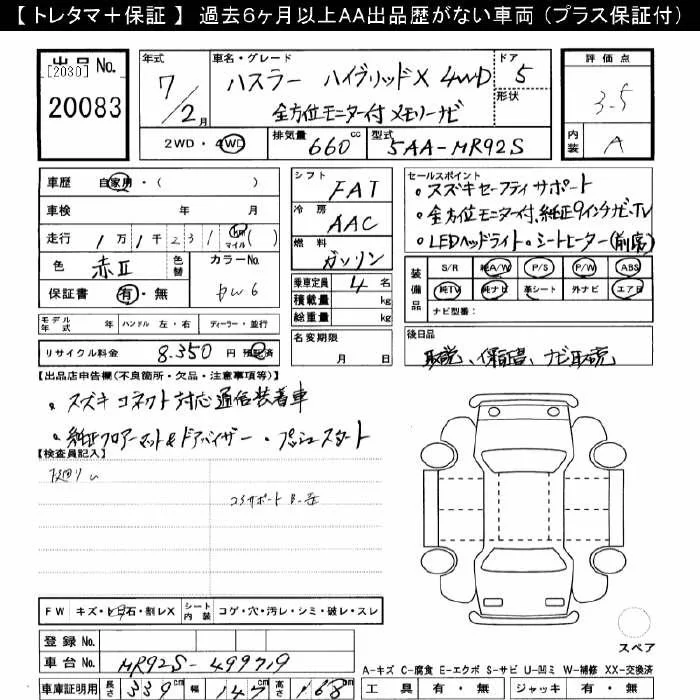 【トレタマ＋保証】 過去6ヶ月以上AA出品歴がない車両（プラス保証付）
出品No.
[2030]
20083
年式
7/2月
車名・グレード
ハスラー ハイブリッドX 4WD
全方位モニター付 メモリーナビ
ドア
5
形状
2WD・4WD
排気量 660cc
型式 5AA-MR92S
評価点
3.5
内装 A
車歴 自家用・（ ）
車検 年 月
走行 1万1千231 km マイル（ ）
色 赤II 色替
カラーNo.
保証書 有・無
シフト FAT
冷房 AAC
燃料 ガソリン
乗車定員 4名
積載量 kg
総重量 kg
名変期限
月 日
セールスポイント
・スズキセーフティサポート
・全方位モニター付、純正9インチナビ・TV
・LEDヘッドライト・シートヒーター(前席)
装備品
S/R 純A/W P/S P/W ABS
純TV 純ナビ 革シート 外ナビ エアB
ナビ型番：
モデル年式 年 ハンドル 左・右 ディーラー・並行
リサイクル料金 8.350円 預託済
後日品
取説、保証書、ナビ取説
【出品店申告欄(不良箇所・欠品・注意事項等)】
・スズキコネクト対応通信装着車
・純正フロアーマット&ドアバイザー ・プッシュスタート
【検査員記入】
コアサポート
FW キズ・飛石・割レX
シート内装 コゲ・穴・汚レ・シミ・破レ・スレ
登録No.
車台No. MR92S-499719
車庫証明用 長さ 339cm 幅 147 高さ 168cm
スペア
A-キズ C-腐食 E-エクボ S-サビ U-凹ミ W-補修 XX-交換済
工具 有・無 ジャッキ 有・無